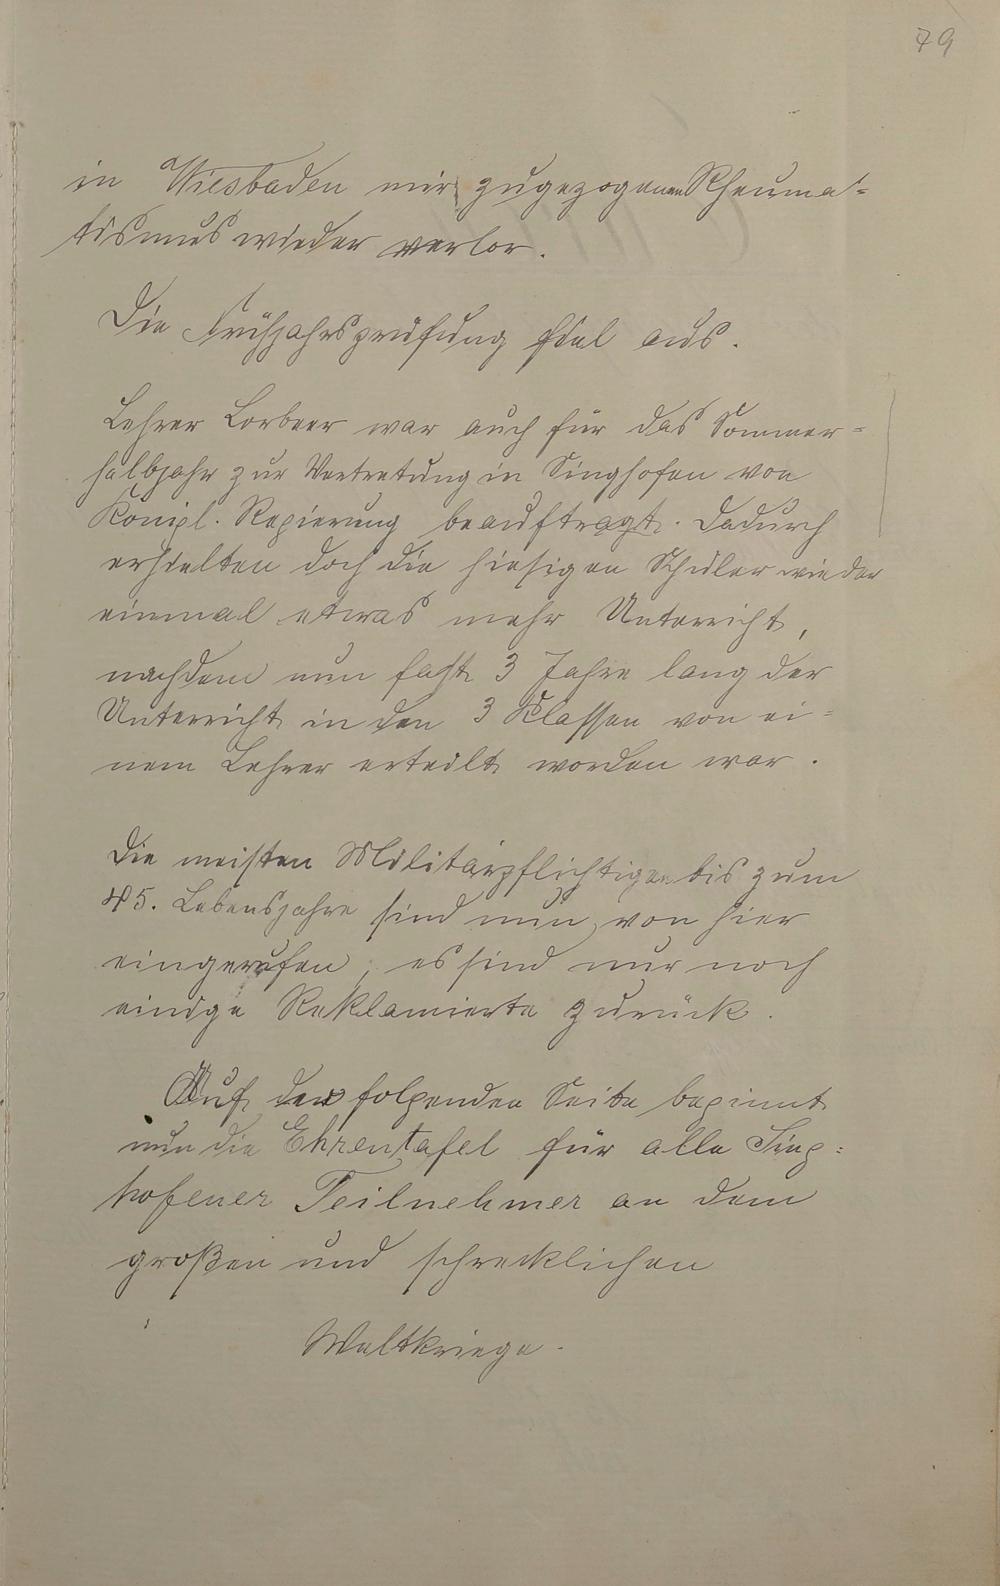 79
in Wiesbaden mir zugezogenen Rheuma-
tismus wieder verlor.
Die Frühjahrsprüfung fiel aus.
Lehrer Lorbeer war auch für das Sommer-
halbjahr zur Vertretung in Singhofen von
Königl. Regierung beauftragt. Dadurch
erhielten doch die hiesigen Schüler wieder
einmal etwas mehr Unterricht,
nachdem nun fast 3 Jahre lang der
Unterricht in den 3 Klassen von ei-
nem Lehrer erteilt worden war.
Die meisten Militärpflichtigen bis zum
45. Lebensjahre sind nun von hier
eingerufen, es sind nur noch
einige Reklamierte zurück.
Auf der folgenden Seite beginnt
nun die Ehrentafel für alle Sing-
hofener Teilnehmer an dem
großen und schrecklichen
Weltkriege.